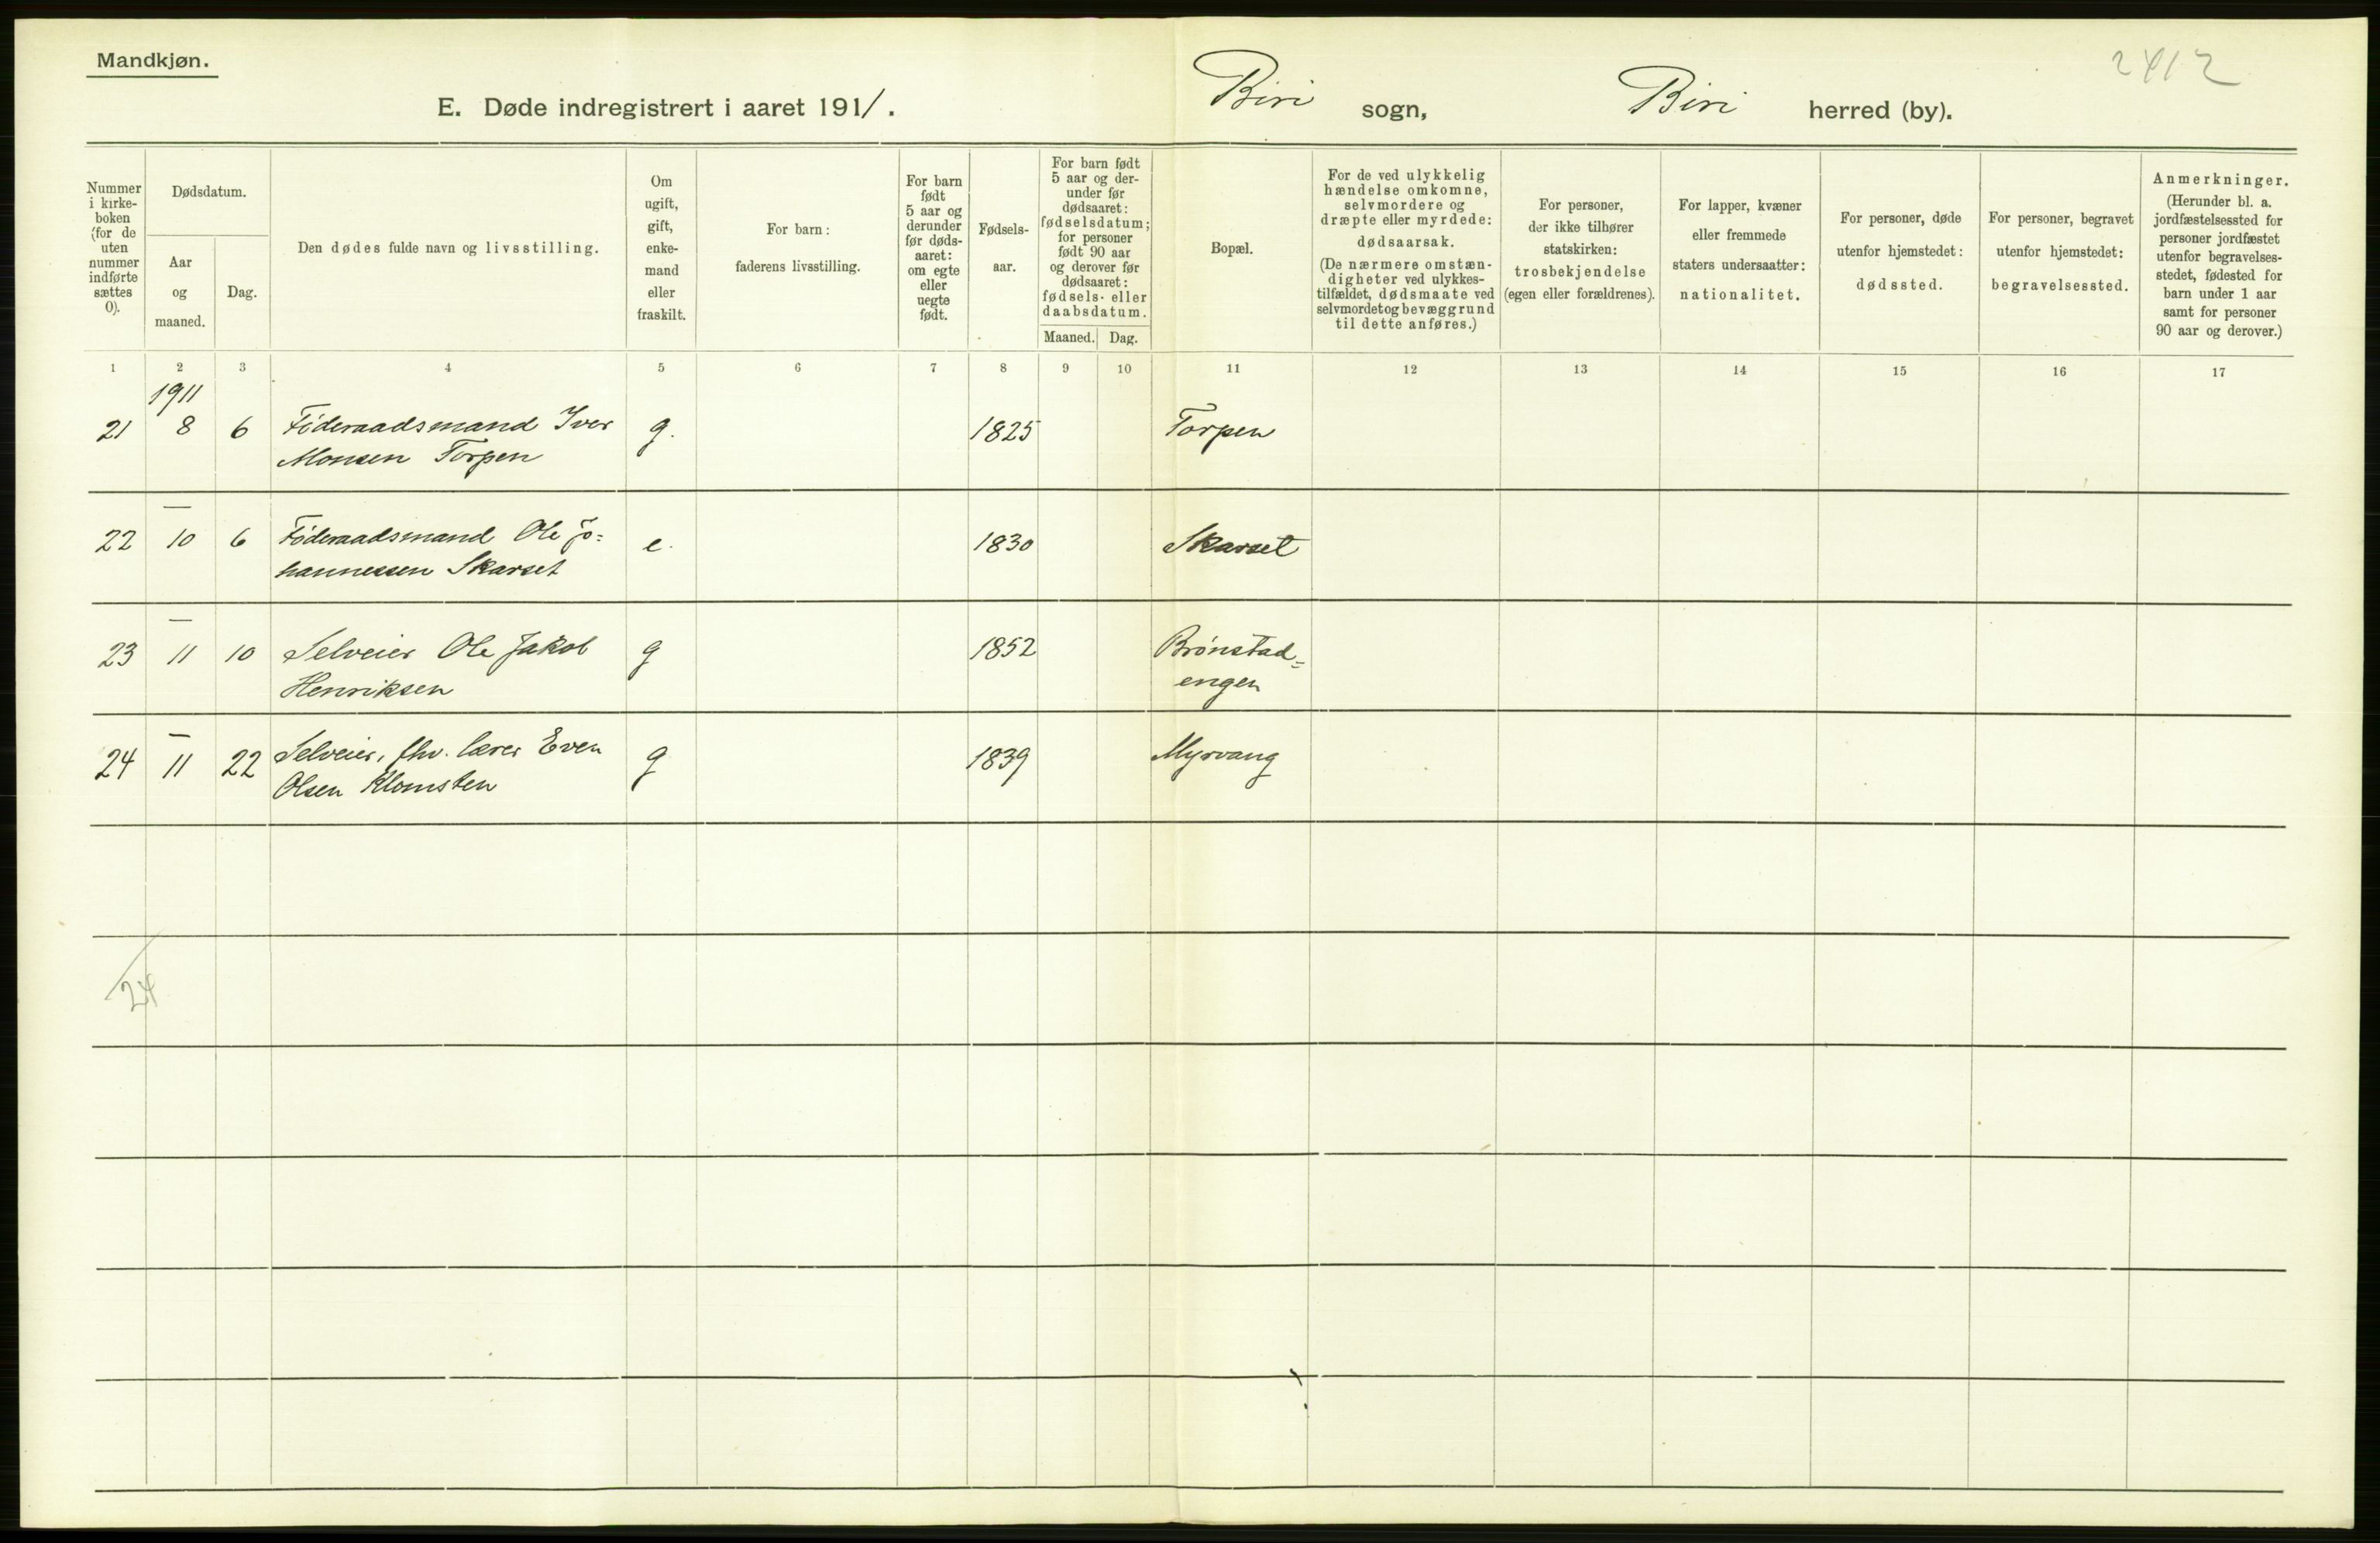 Mandkjøn.
2412
E. Døde indregistrert i aaret 1911.
Biri sogn,
Biri herred (by).
Nummer
i kirke-
boken
(for de
uten
nummer
indførte
sættes
0).
Dødsdatum.
Aar
og
maaned.
Dag.
Den dødes fulde navn og livsstilling.
Om
ugift,
gift,
enke-
mand
eller
fraskilt.
For barn:
faderens livsstilling.
For barn
født
5 aar og
derunder
før døds-
aaret:
om egte
eller
uegte
født.
Fødsels-
aar.
For barn født
5 aar og der-
under før
dødsaaret:
fødselsdatum;
for personer
født 90 aar
og derover før
dødsaaret:
fødsels- eller
daabsdatum.
Maaned. Dag.
Bopæl.
For de ved ulykkelig
hændelse omkomne,
selvmordere og
dræpte eller myrdede:
dødsaarsak.
(De nærmere omstæn-
digheter ved ulykkes-
tilfældet, dødsmaate ved
selvmordet og bevæggrund
til dette anføres.)
For personer,
der ikke tilhører
statskirken:
trosbekjendelse
(egen eller forældrenes).
For lapper, kvæner
eller fremmede
staters undersaatter:
nationalitet.
For personer, døde
utenfor hjemstedet:
dødssted.
For personer, begravet
utenfor hjemstedet:
begravelsessted.
Anmerkninger.
(Herunder bl. a.
jordfæstelsessted for
personer jordfæstet
utenfor begravelses-
stedet, fødested for
barn under 1 aar
samt for personer
90 aar og derover.)
1 2 3 4 5 6 7 8 9 10 11 12 13 14 15 16 17
1911
21 8 6 Föderaadsmand Iver g. 1825 Torpen
Monsen Torpen
—
22 10 6 Föderaadsmand Ole Jo= e. 1830 Skarset
hannessen Skarset
—
23 11 10 Selveier Ole Jakob g 1852 Brónstad=
Henriksen engen
—
24 11 22 Selveier, fhv. lærer Even g 1839 Myrvang
Olsen Klomsten
24